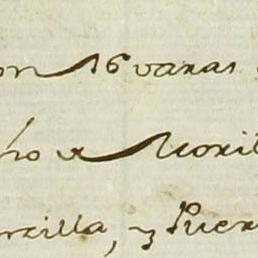 on 16 varas
ho a Moril
rcilla, y Puer